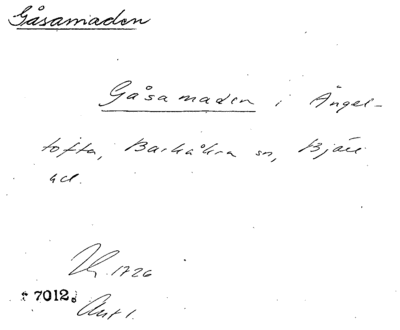 Gåsamaden
Gåsamaden i Ängel-
tofta, Barkåkra sn, Bjäre
hd.
1726
7012